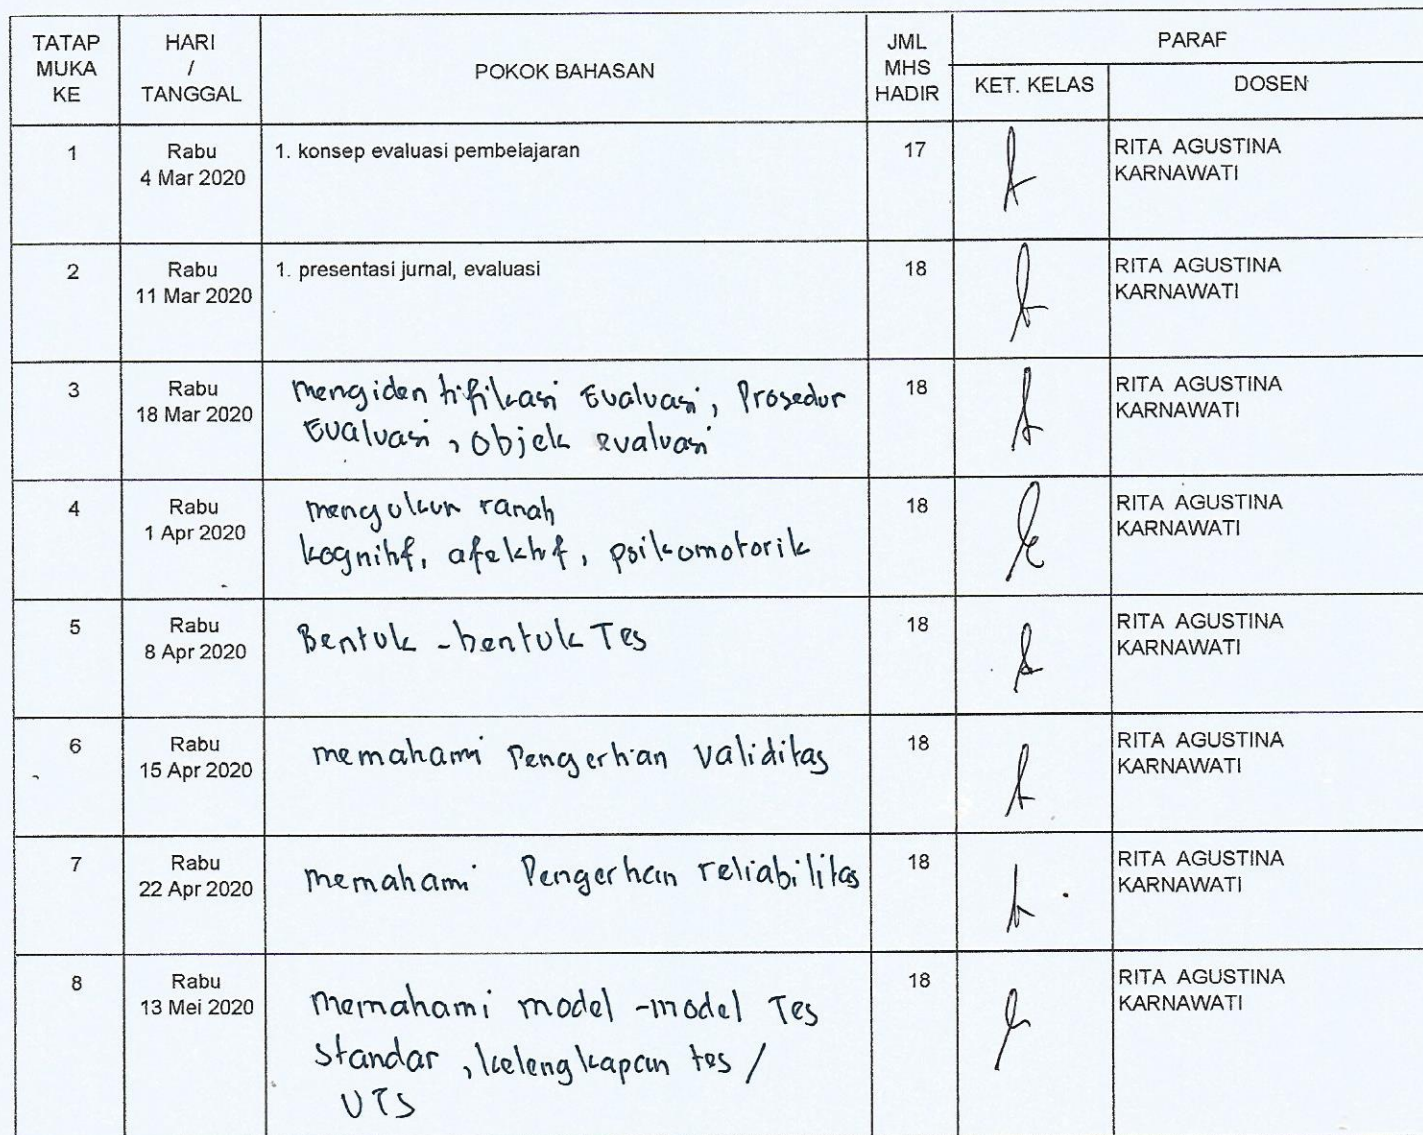 TATAP MUKA KE
HARI / TANGGAL
POKOK BAHASAN
JML MHS HADIR
PARAF
KET. KELAS
DOSEN
1
Rabu
4 Mar 2020
1. konsep evaluasi pembelajaran
17
RITA AGUSTINA
KARNAWATI
2
Rabu
11 Mar 2020
1. presentasi jurnal, evaluasi
18
RITA AGUSTINA
KARNAWATI
3
Rabu
18 Mar 2020
mengidentifikasi Evaluasi, Prosedur
Evaluasi, objek evaluasi
18
RITA AGUSTINA
KARNAWATI
4
Rabu
1 Apr 2020
mengukur ranah
kognitif, afektif, psikomotorik
18
RITA AGUSTINA
KARNAWATI
5
Rabu
8 Apr 2020
Bentuk - bentuk Tes
18
RITA AGUSTINA
KARNAWATI
6
Rabu
15 Apr 2020
memahami Pengertian Validitas
18
RITA AGUSTINA
KARNAWATI
7
Rabu
22 Apr 2020
memahami Pengertian reliabilitas
18
RITA AGUSTINA
KARNAWATI
8
Rabu
13 Mei 2020
memahami model - model Tes
standar, kelengkapan tes /
UTS
18
RITA AGUSTINA
KARNAWATI